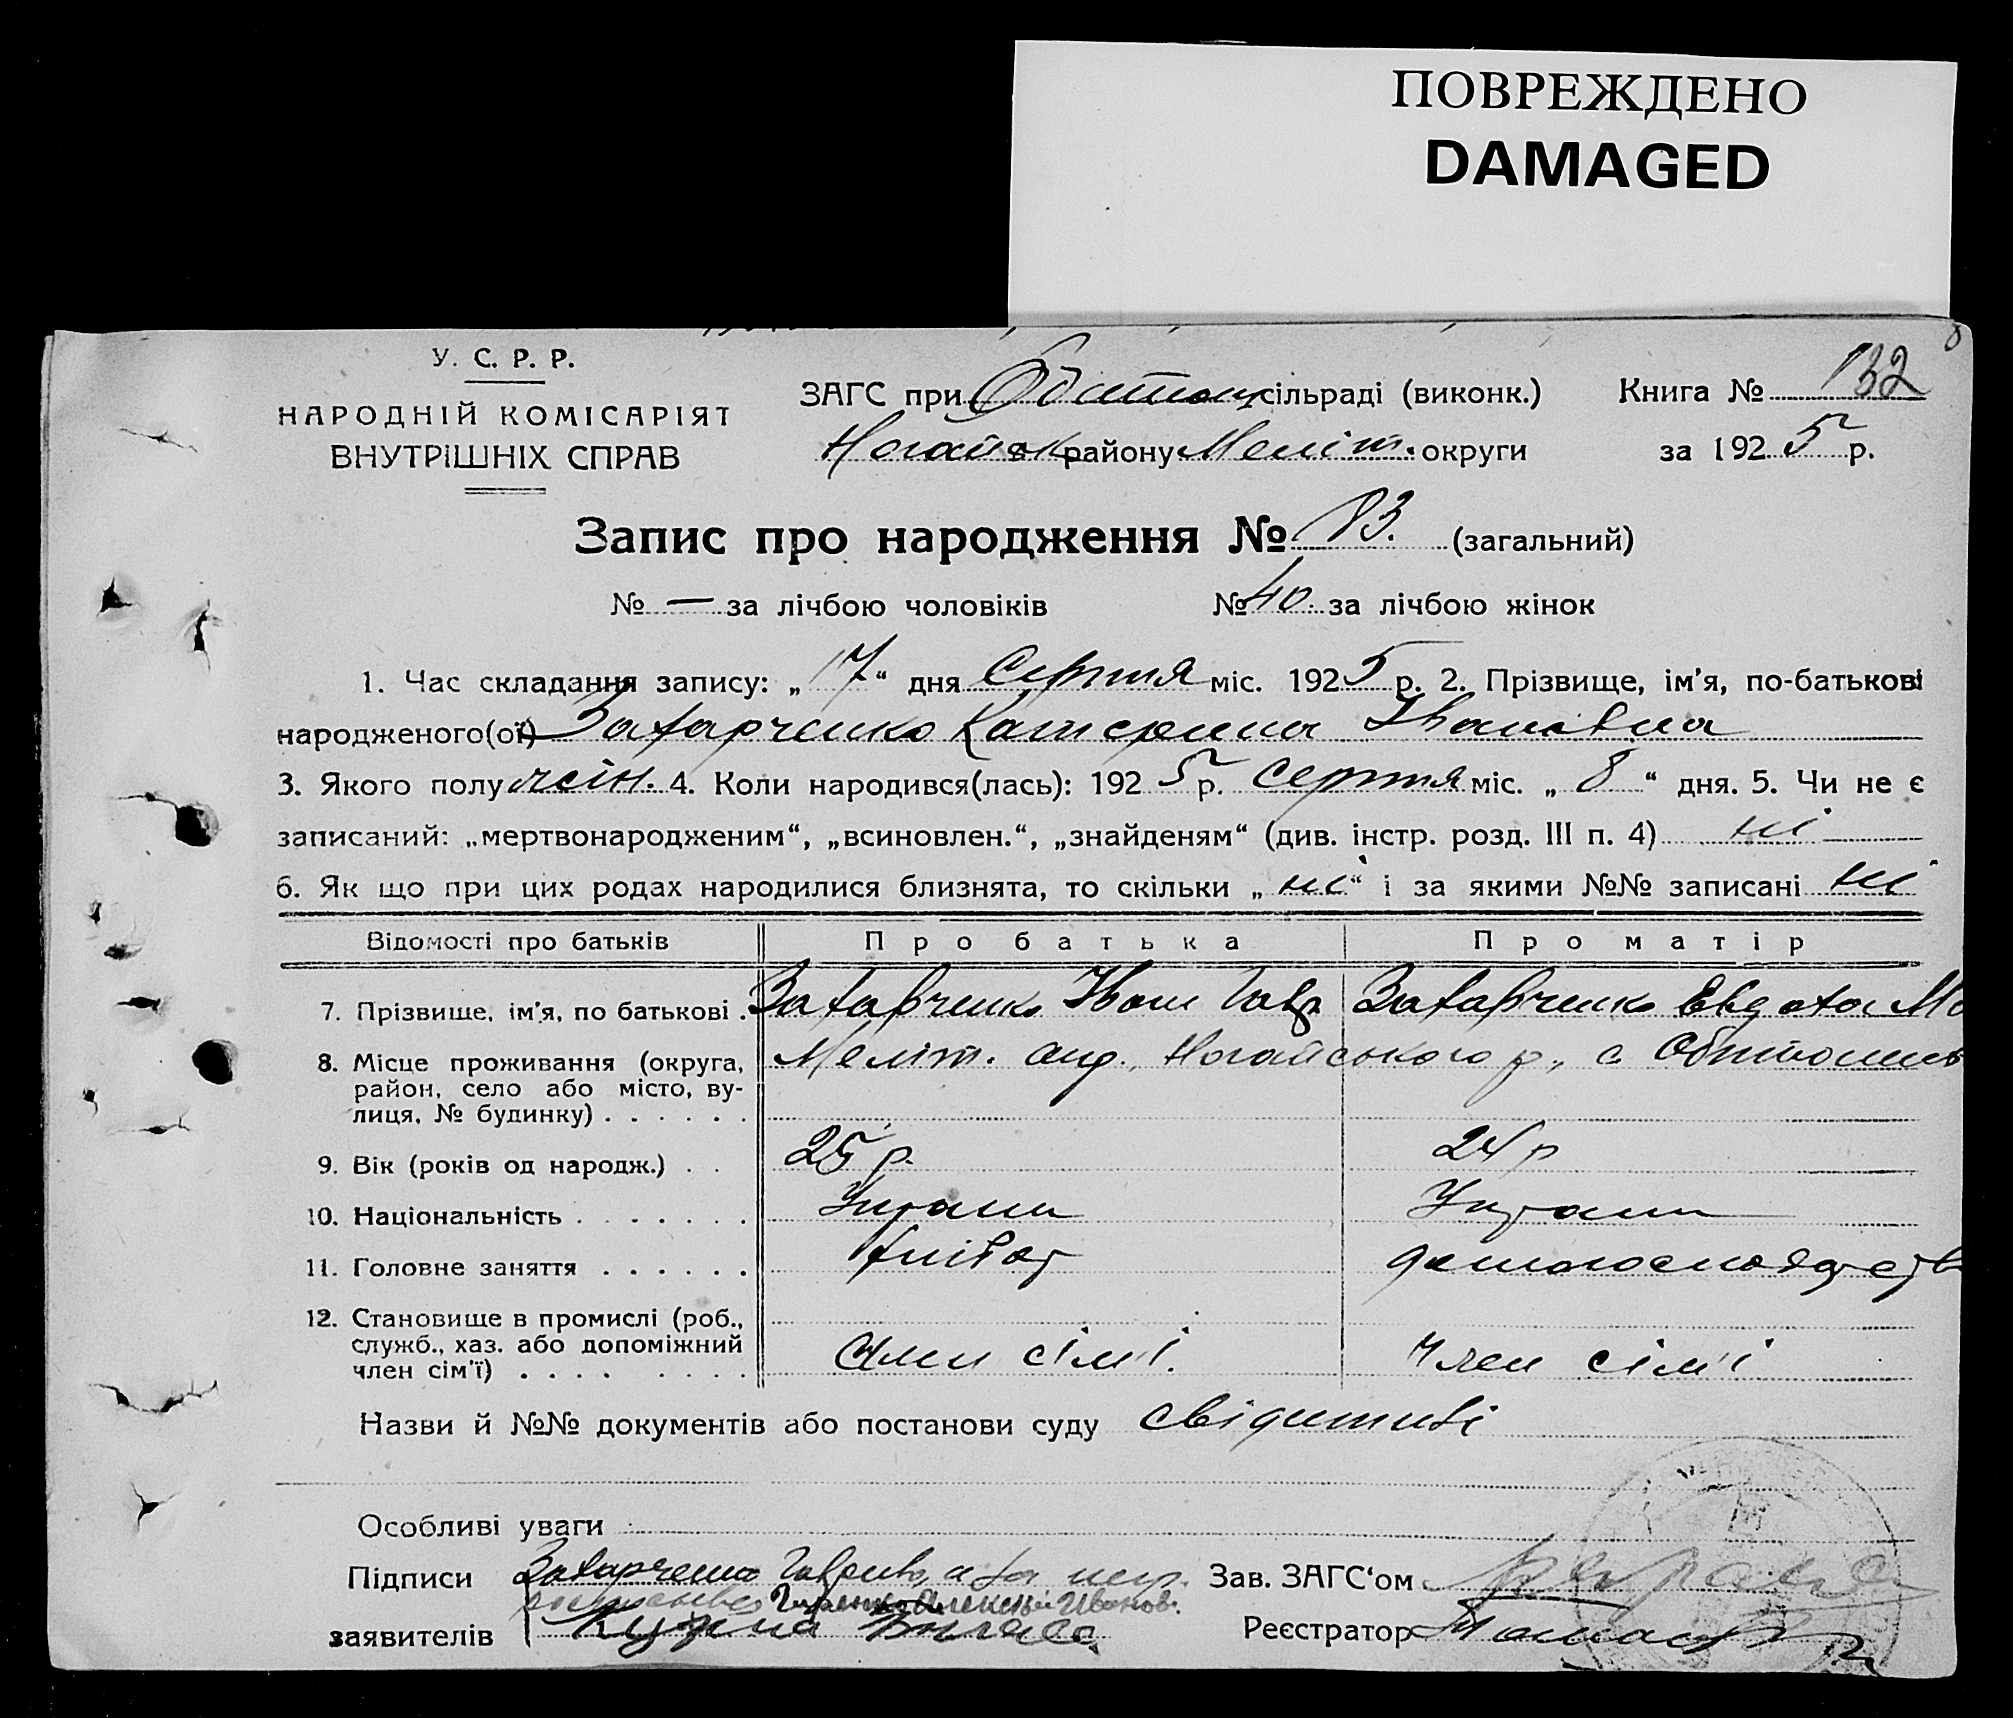 ПОВРЕЖДЕНО
DAMAGED
У. С. Р. Р.
НАРОДНІЙ КОМІСАРІЯТ
ВНУТРІШНІХ СПРАВ
ЗАГС при Обиточ. сільраді (виконк.)
Ногайськ району Меліт. округи
Книга № 132
за 1925 р.
Запис про народження № 83. (загальний)
№ — за лічбою чоловіків № 40. за лічбою жінок
1. Час складання запису: „17“ дня Серпня міс. 1925 р. 2. Прізвище, ім'я, по-батькові
народженого(ої) Захарченко Катерина Іванівна
3. Якого полу жін. 4. Коли народився(лась): 1925 р. Серпня міс. „8“ дня. 5. Чи не є
записаний: „мертвонародженим“, „всиновлен.“, „знайденям“ (див. інстр. розд. III п. 4) ні
6. Як що при цих родах народилися близнята, то скільки „ні“ і за якими №№ записані ні
Відомості про батьків Про батька Про матір
7. Прізвище, ім'я, по батькові . Захарченко Іван Гавр. Захарченко Евдотія
8. Місце проживання (округа, район, село або місто, вулиця, № будинку) . . . . . . Меліт. окр., Ногайського р., с.
9. Вік (років од народж.) . . 25 р. 24 р
10. Національність . . . . . . . Украин Украин
11. Головне заняття . . . . . . хлібор
12. Становище в промислі (роб., служб., хаз. або допоміжний член сім'ї) . . . . . . . . Член сім'ї. Член сім'ї
Назви й №№ документів або постанови суду
Особливі уваги
Підписи Захарченко Зав. ЗАГС'ом
Алексей Иванов.
заявителів Реєстратор